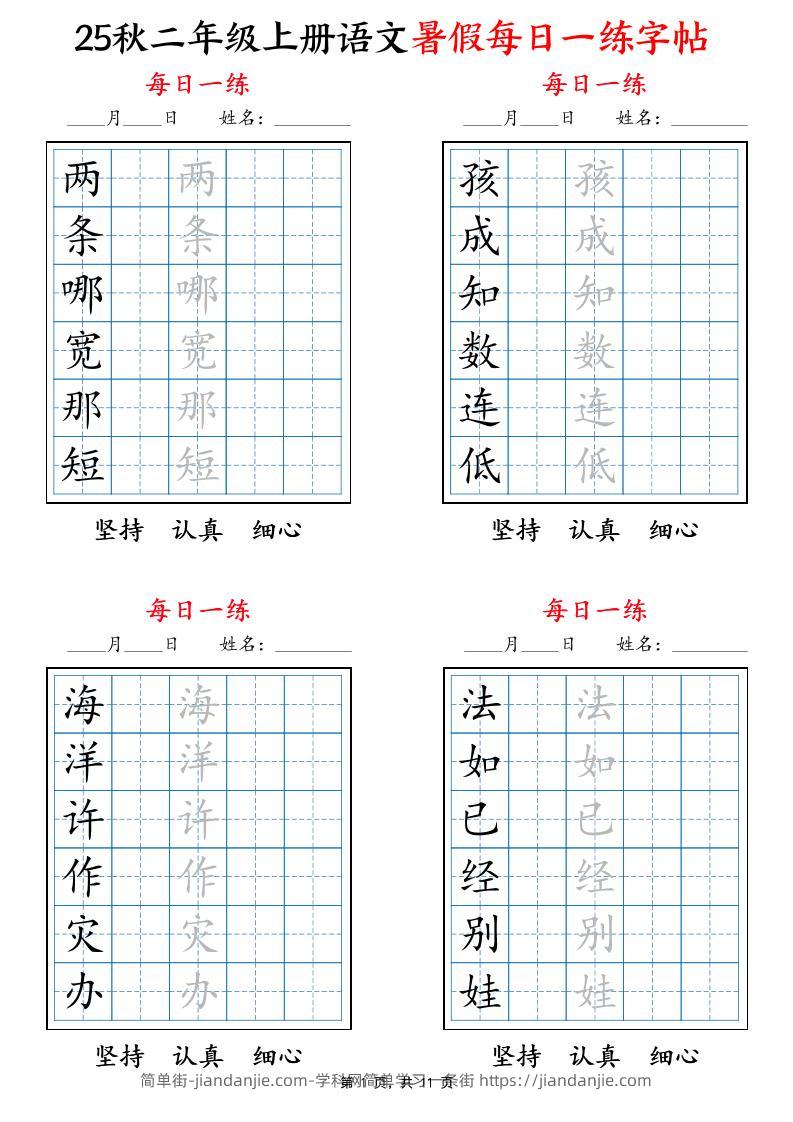 25秋二年级上册语文暑假每日一练字帖
每日一练
____月____日 姓名：________
两 两
条 条
哪 哪
宽 宽
那 那
短 短
坚持 认真 细心
每日一练
____月____日 姓名：________
孩 孩
成 成
知 知
数 数
连 连
低 低
坚持 认真 细心
每日一练
____月____日 姓名：________
海 海
洋 洋
许 许
作 作
灾 灾
办 办
坚持 认真 细心
每日一练
____月____日 姓名：________
法 法
如 如
已 已
经 经
别 别
娃 娃
坚持 认真 细心
简单街-jiandanjie.com-学科网简单学习一条街 https://jiandanjie.com
第 1 页，共 11 页